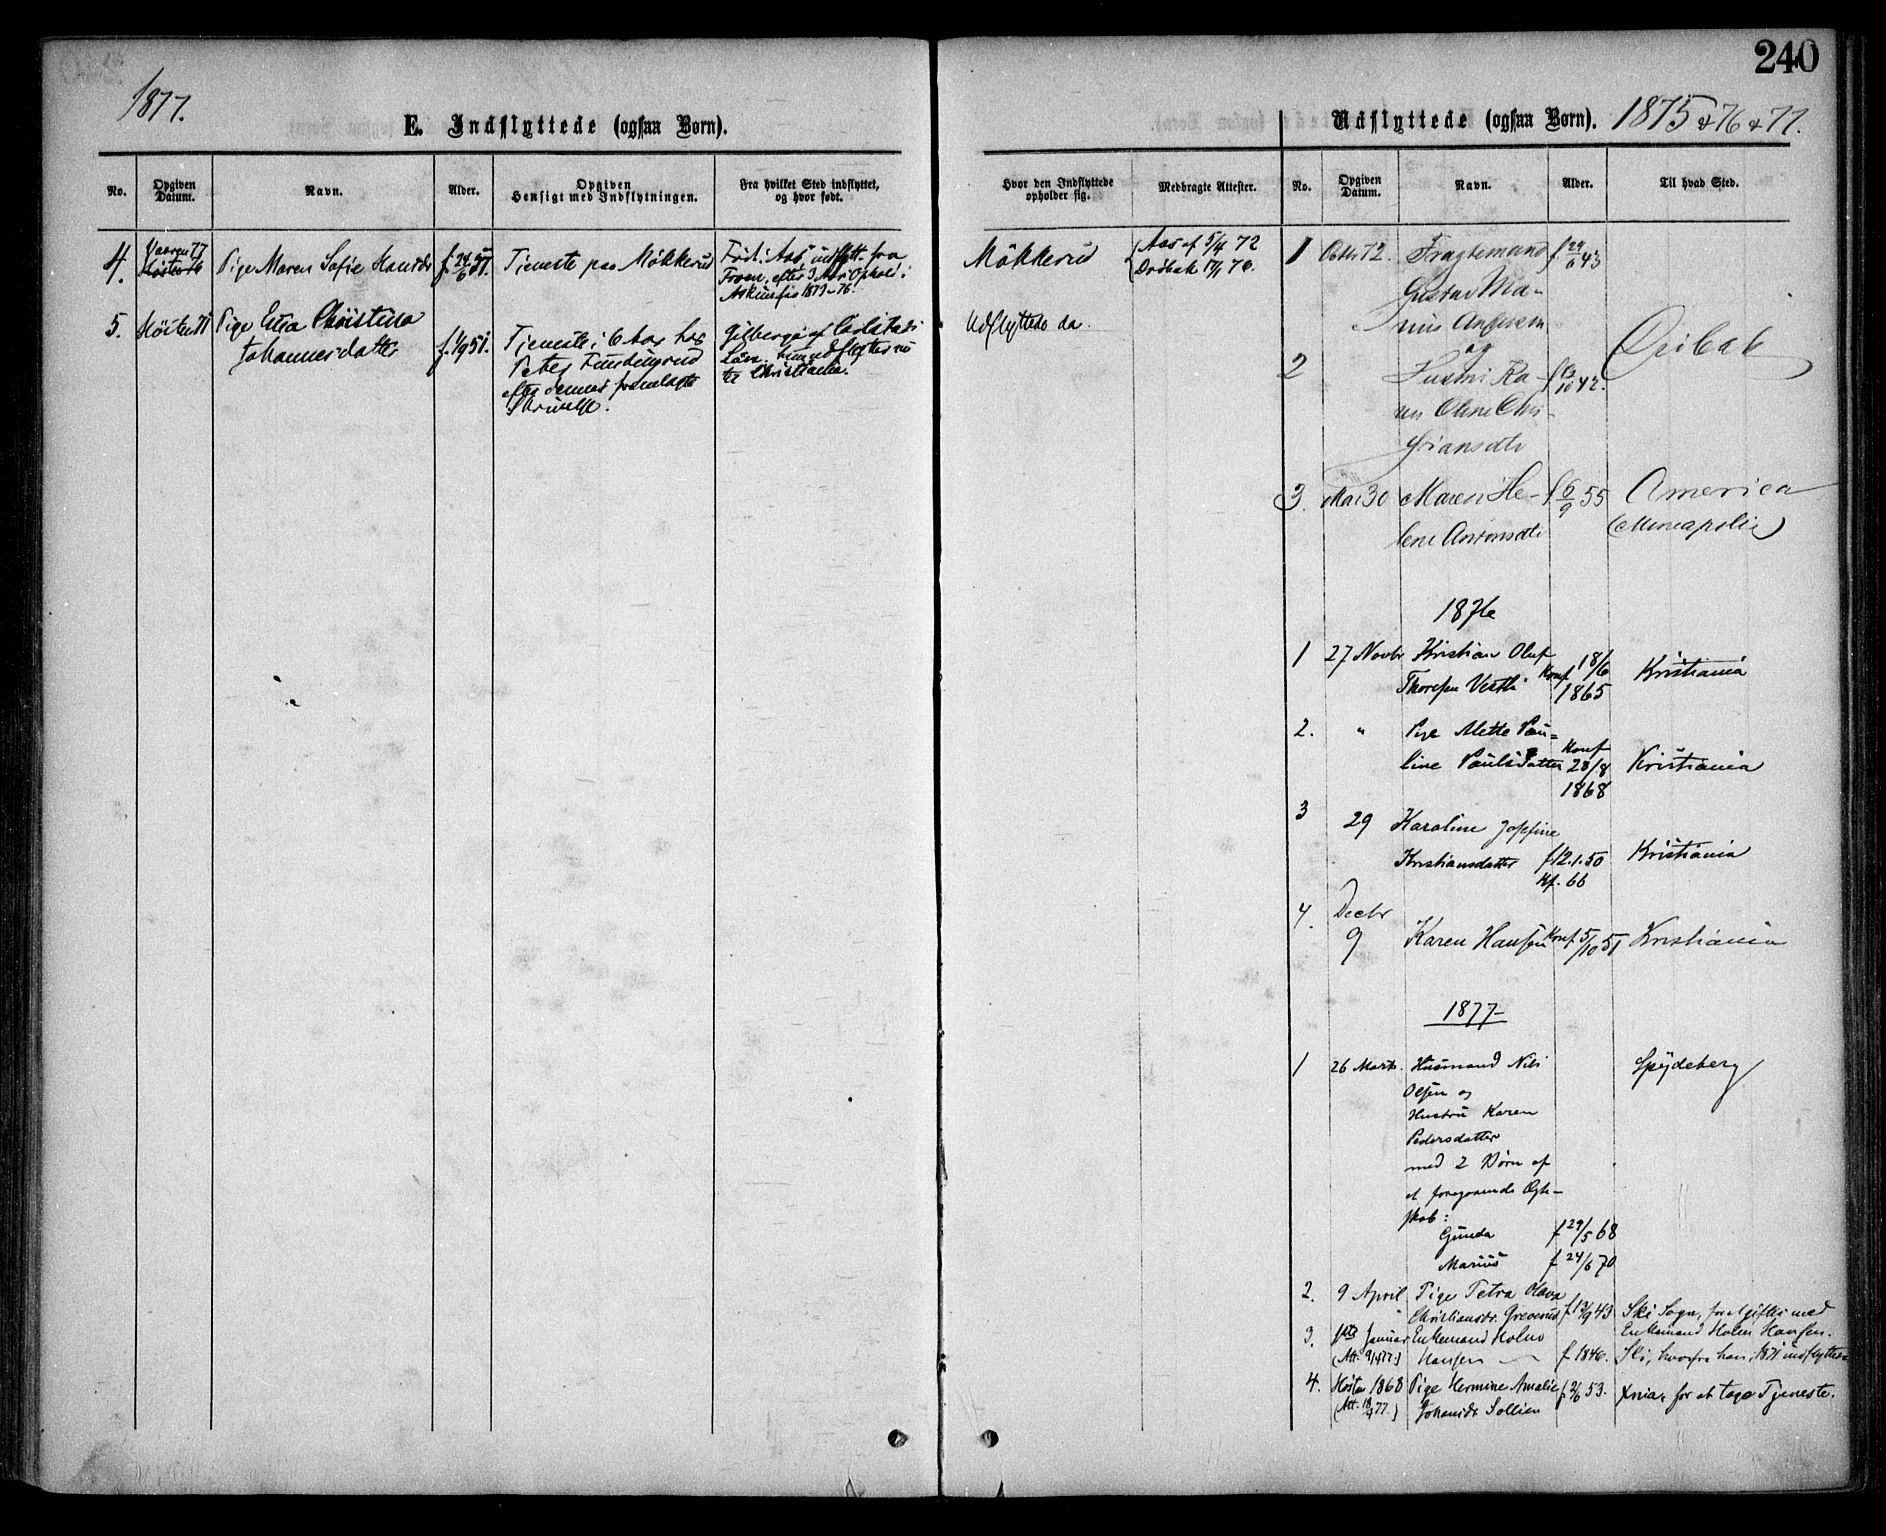 240
1877.
E. Indflyttede (ogsaa Børn).
No.
Opgiven Datum.
Navn.
Alder.
Opgiven Hensigt med Indflytningen.
Fra hvilket Sted indflyttet, og hvor født.
Hvor den Indflyttede opholder sig.
Medbragte Attester.
4.
Vaaren 77
Høsten 76
Pige Maren Sofie Hansdr
f. 24/6 51.
Tjeneste paa Møkkerud
Født i Aas, indflytt. fra
Froen, efter 3 Aars Ophold i
1873-76.
Møkkerud
Aas af 5/4 72
Drøbak 17/1 76.
5.
Høsten 71
Pige Christina
Johannesdatter
f. 1/9 51.
Tjeneste i hos
Peter
efter dennes fremlagte
Skrivelse.
Gilberga af Carlstads
Län. hun udflytter nu
til Christiania.
Udflyttede da.
Udflyttede (ogsaa Børn).
1875 & 76 & 77.
No.
Opgiven Datum.
Navn.
Alder.
Til hvad Sted.
1
Octbr 72.
Fragtemand
f 29/6 43
Gustav Ma-
rius Andersen
og
2
Hustru Ka-
f 13/10 42.
ren Oline Chri-
stiansdtr
Drøbak
3.
Mai 30
Maren He-
lene Antonsdtr
f 6/9 55
America
(Mineapolis)
1876
1
27 Novbr
Kristian Oluf
Thoresen Vestli
Konf 18/6
1865
Kristiania
2.
"
Pige Mette Pau-
line Paulsdatter
Konf
23/8
1868
Kristiania
3
29
Karoline Josefine
Kristiansdatter
f 12.1.50
Kf. 66
Kristiania
4.
Decbr
9
Karen Hansen
Konf 5/10 51
Kristiania
1877
1
26 Marts.
Husmand Nils
Olsen og
Hustru Karen
Pedersdatter
med 2 Børn af
et foregaaende Ægte-
skab:
Gunda
f 29/5 68
Marius
f 24/6 70
Spydeberg
2.
9 April
Pige Petra Olava
Christiansdr. Greverud
f 13/9 43
Ski Sogn, for at giftes med
Enkemand Holm Hansen.
3.
1ste Januar
(Att. 9/4 77.)
Enkemand Holm
Hansen
f. 1846.
Ski, hvorfra han i 1871 indflyttede
4.
Høsten 1868
(Att. 18/4 77.)
Pige Hermine Amalie
Johansdr. Sollien
f 2/6 53.
Xnia, for at tage Tjeneste.